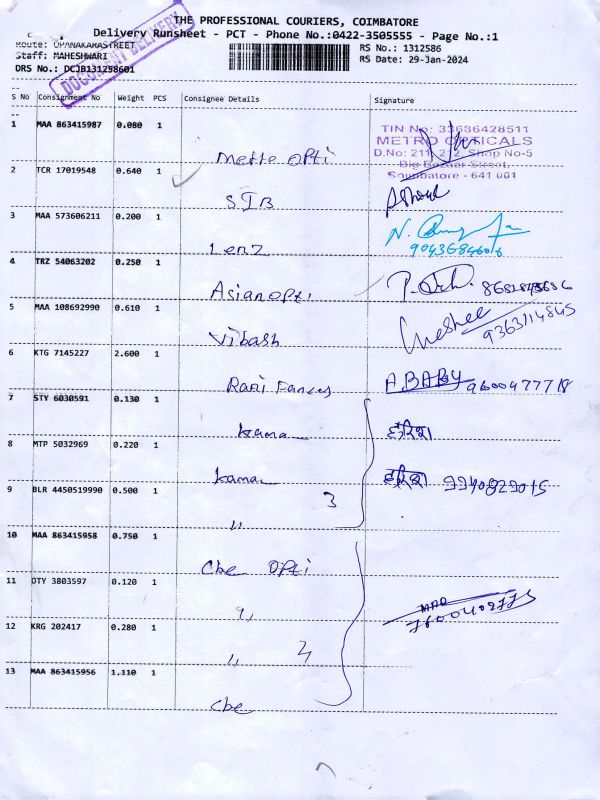 THE PROFESSIONAL COURIERS, COIMBATORE
Delivery Runsheet - PCT - Phone No.:0422-3505555 - Page No.:1
Route: OPANAKARASTREET
RS No.: 1312586
Staff: MAHESHWARI
RS Date: 29-Jan-2024
DRS No.: DCJB131258601
DOCUMENT DELIVERY
S No Consignment No Weight PCS Consignee Details Signature
1 MAA 863415987 0.080 1
TIN No: 33686428511
METRO OPTICALS
D.No: 211, 212, Shop No-5
Big Bazaar Street,
Coimbatore - 641 001
Mette opti
2 TCR 17019548 0.640 1
STB
3 MAA 573606211 0.200 1
Lenz
N.
4 TRZ 54063202 0.250 1
Asian opti
P.
5 MAA 108692990 0.610 1
Vibash
9363114845
6 KTG 7145227 2.600 1
Rani Fancy
A.BABY 9600477718
7 STY 6030591 0.130 1
kama
8 MTP 5032969 0.220 1
kama
9 BLR 4450519990 0.500 1
3
"
10 MAA 863415958 0.750 1
Cbe opti
11 OTY 3803597 0.120 1
"
12 KRG 202417 0.280 1
"
13 MAA 863415956 1.110 1
Cbe